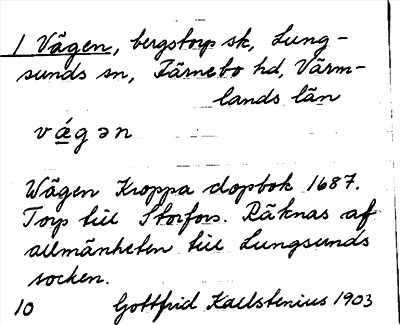 1 Vägen, bergstorp sk, Lung-
sunds sn, Färnebo hd, Värm-
lands län
vǽgən
Wägen Kroppa dopbok 1687.
Torp till Storfors. Räknas af
allmänheten till Lungsunds
socken.
10 Gottfrid Kallstenius 1903